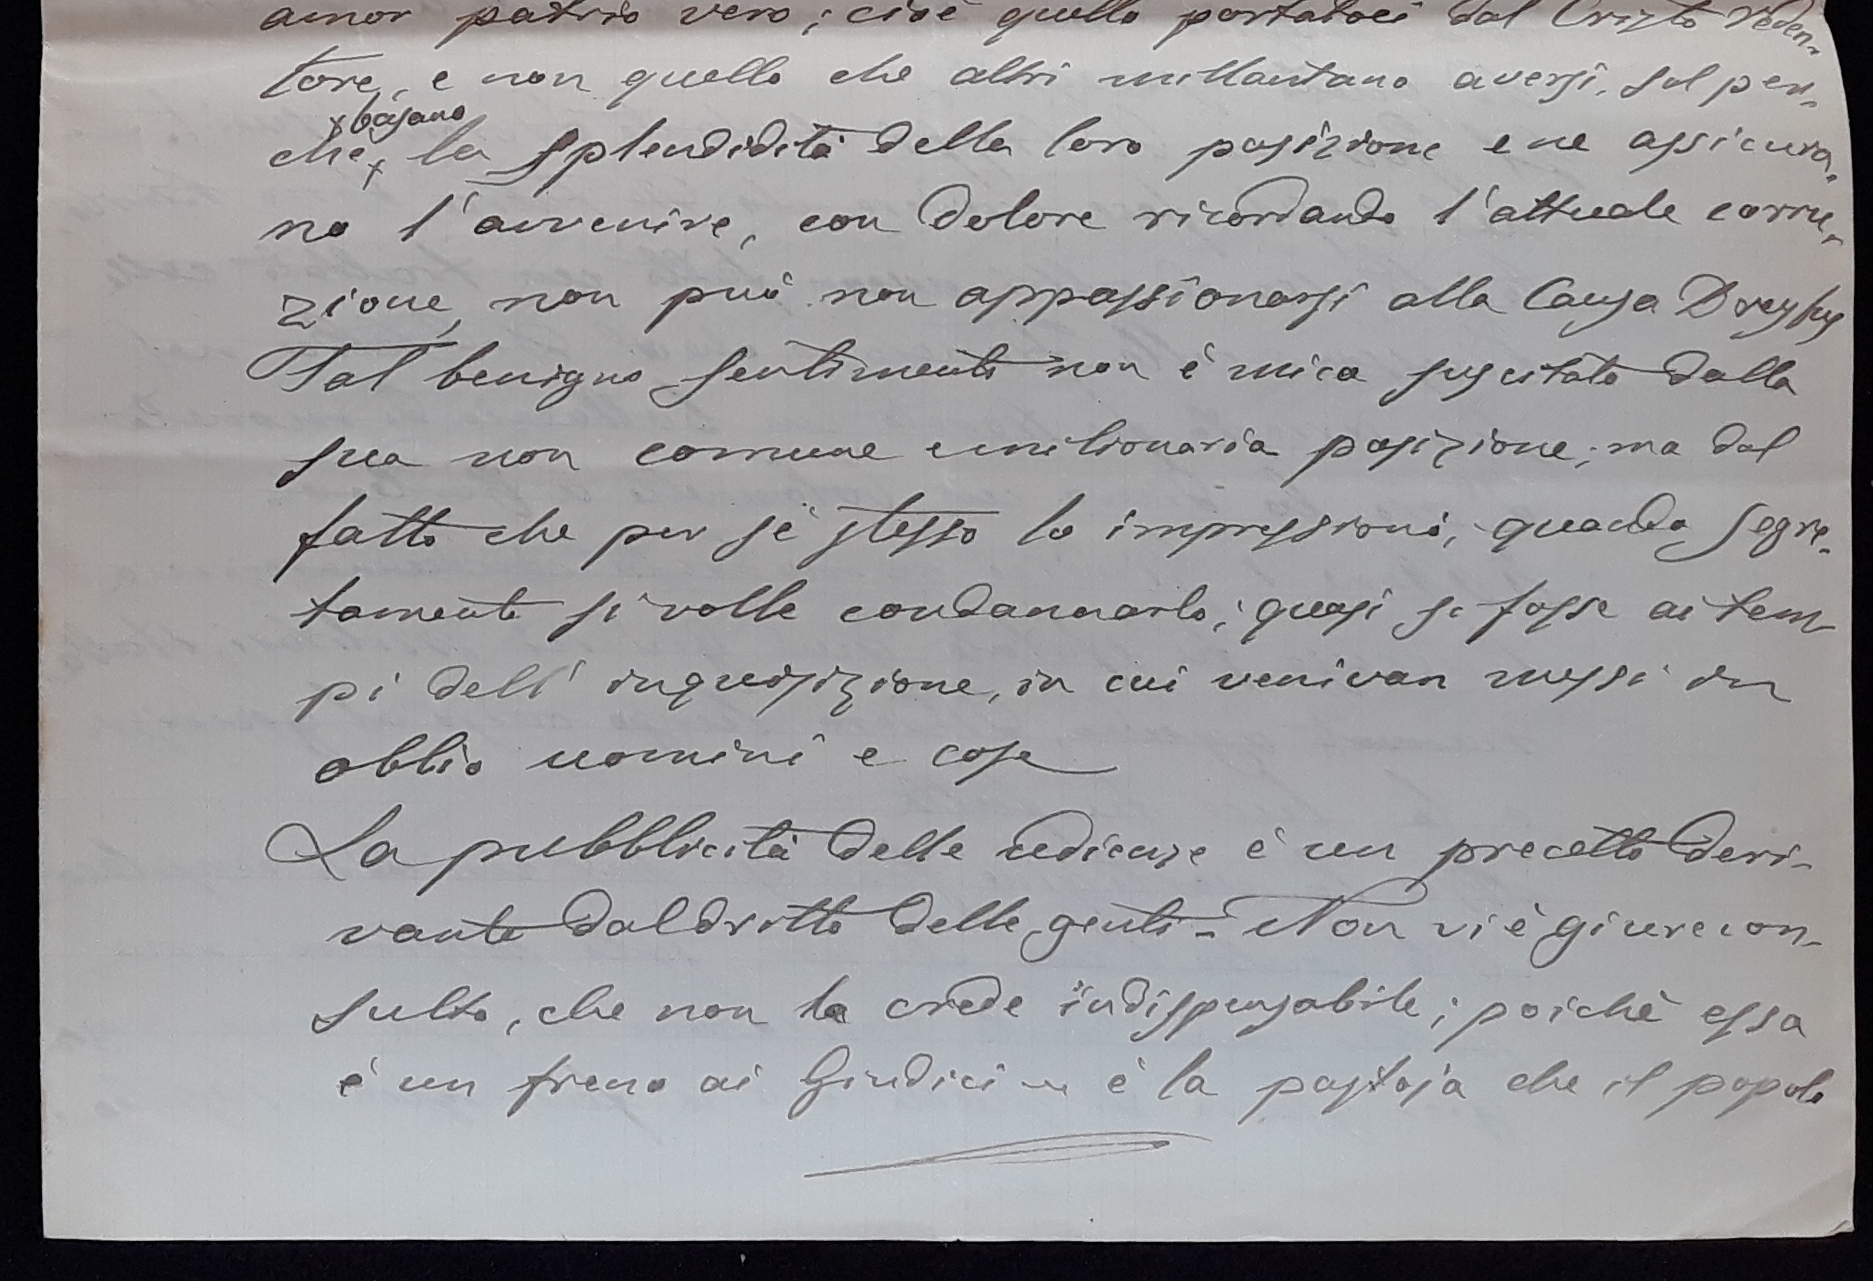 amor patrio vero; cioè quello portatoci dal Cristo Reden-
tore, e non quello che altri millantano aversi, sol per-
x basano
che x la splendidità della loro posizione e ne assicura-
no l'avvenire, con dolore ricordando l'attuale corru-
zione, non può non appassionarsi alla Causa Dreyfus
Tal benigno sentimento non è mica suscitato dalla
sua non comune e milionaria posizione; ma dal
fatto che per sé stesso lo impressionò, quando segre-
tamente si volle condannarlo; quasi si fosse ai tem-
pi dell'inquisizione, in cui venivan messi in
oblio uomini e cose
La pubblicità delle udienze è un precetto deri-
vante dal dritto delle genti - Non vi è giurecon-
sulto, che non la crede indispensabile; poichè essa
è un freno ai Giudici è la pastoja che il popolo